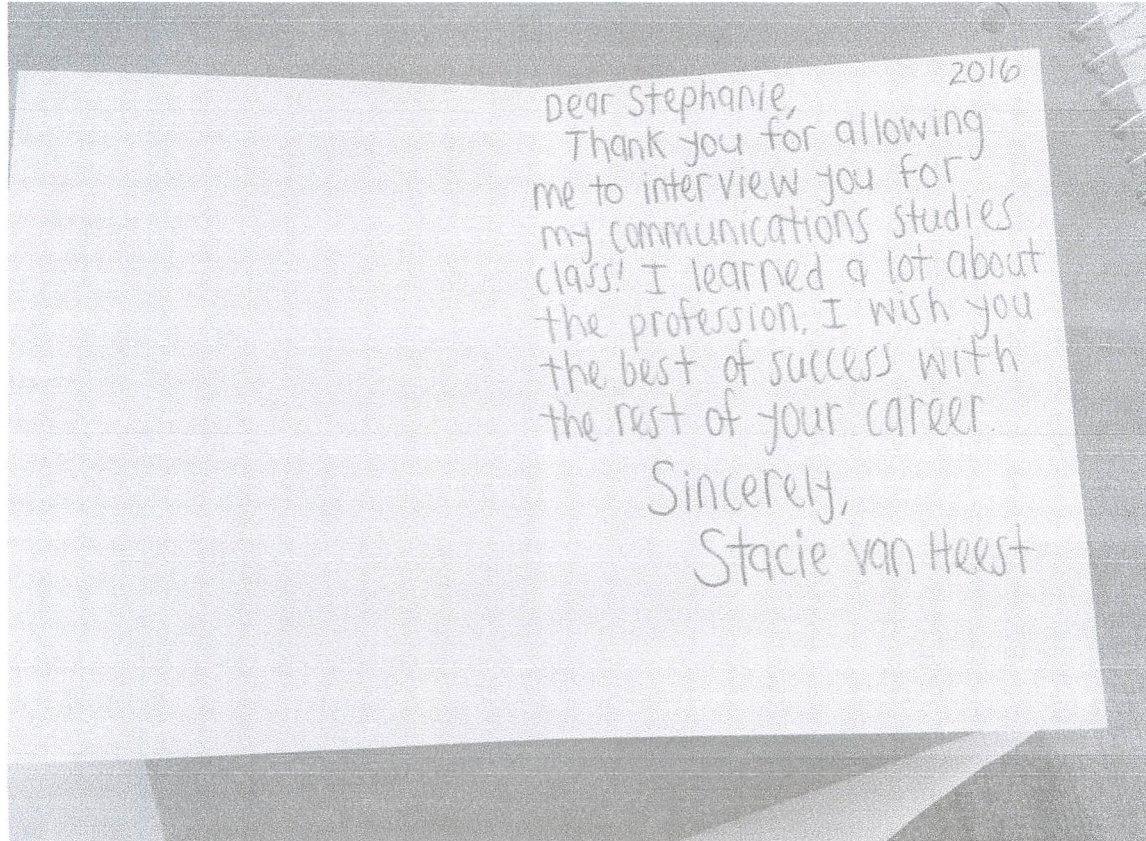 2016
Dear Stephanie,
Thank you for allowing
me to interview you for
my communications studies
class! I learned a lot about
the profession. I wish you
the best of success with
the rest of your career.
Sincerely,
Stacie van Heest